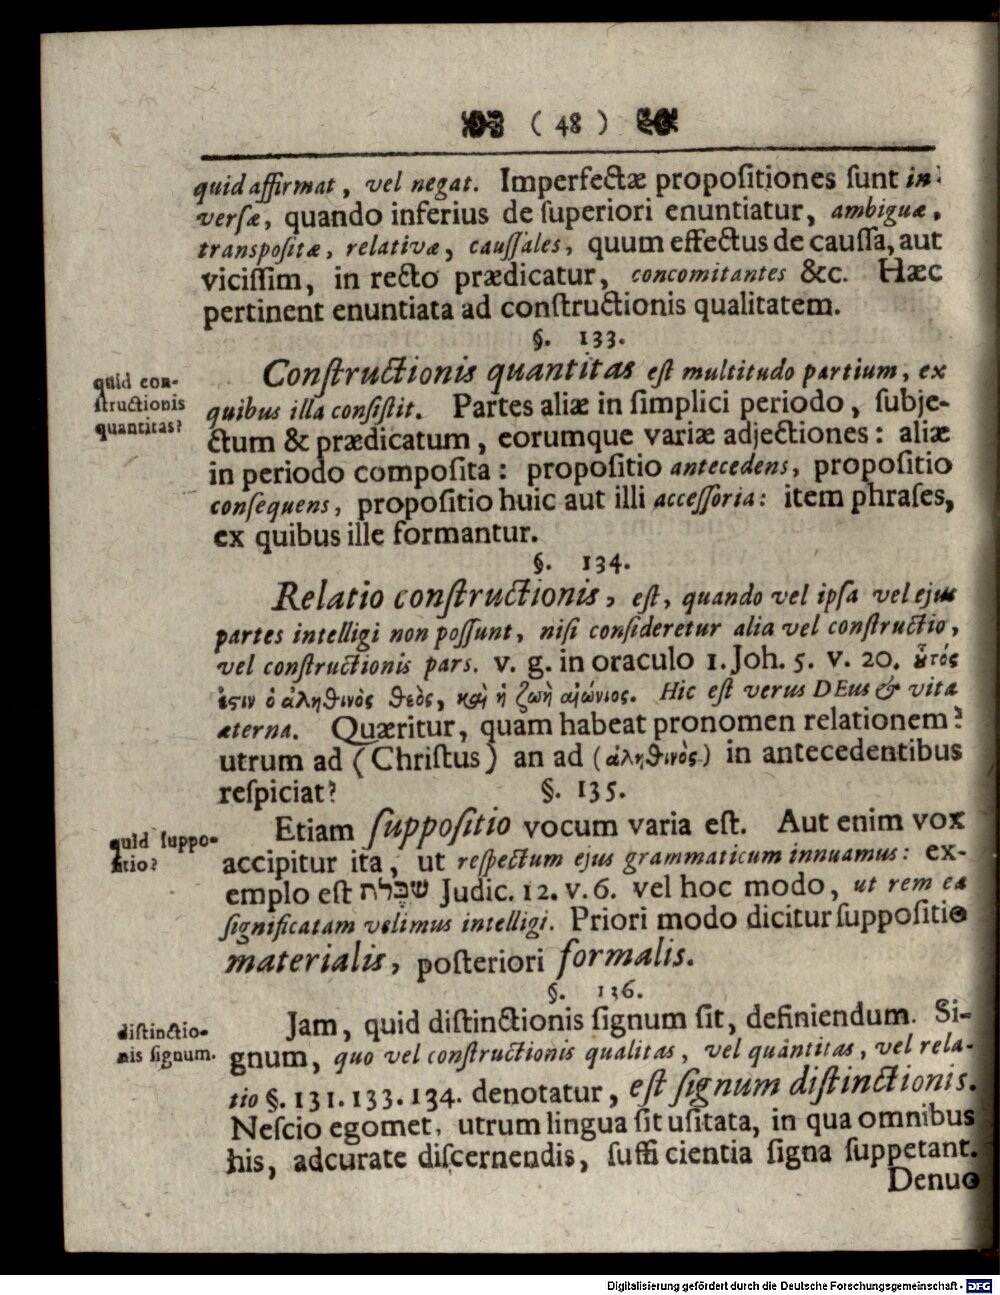 ( 48 )
quid affirmat, vel negat. Imperfectæ propoſitiones ſunt in-
verſæ, quando inferius de ſuperiori enuntiatur, ambiguæ,
transpoſitæ, relativæ, cauſſales, quum effectus de cauſſa, aut
viciſſim, in recto prædicatur, concomitantes &c. Hæc
pertinent enuntiata ad conſtructionis qualitatem.
§. 133.
quid con-
ſtructionis
quantitas?
Conſtructionis quantitas eſt multitudo partium, ex
quibus illa conſiſtit. Partes aliæ in ſimplici periodo, ſubje-
ctum & prædicatum, eorumque variæ adjectiones: aliæ
in periodo compoſita: propoſitio antecedens, propoſitio
conſequens, propoſitio huic aut illi acceſſoria: item phraſes,
ex quibus ille formantur.
§. 134.
Relatio conſtructionis, eſt, quando vel ipſa vel ejus
partes intelligi non poſſunt, niſi conſideretur alia vel conſtructio,
vel conſtructionis pars. v. g. in oraculo 1. Joh. 5. v. 20. ȣ̃τός
ἐςιν ὁ ἀληθινὸς θεὸς, καὶ ἡ ζωὴ αἰώνιος. Hic eſt verus DEus & vita
æterna. Quæritur, quam habeat pronomen relationem?
utrum ad (Chriſtus) an ad (ἀληθινὸς) in antecedentibus
reſpiciat?
§. 135.
quid ſuppo-
ſitio?
Etiam ſuppoſitio vocum varia eſt. Aut enim vox
accipitur ita, ut reſpectum ejus grammaticum innuamus: ex-
emplo eſt שבלת Judic. 12. v. 6. vel hoc modo, ut rem ea
ſignificatam velimus intelligi. Priori modo dicitur ſuppoſitio
materialis, poſteriori formalis.
§. 136.
diſtinctio-
nis ſignum.
Jam, quid diſtinctionis ſignum ſit, definiendum. Si-
gnum, quo vel conſtructionis qualitas, vel quantitas, vel rela-
tio §. 131. 133. 134. denotatur, eſt ſignum diſtinctionis.
Neſcio egomet, utrum lingua ſit uſitata, in qua omnibus
his, adcurate diſcernendis, ſufficientia ſigna ſuppetant.
Denuo
Digitalisierung gefördert durch die Deutsche Forschungsgemeinschaft - DFG